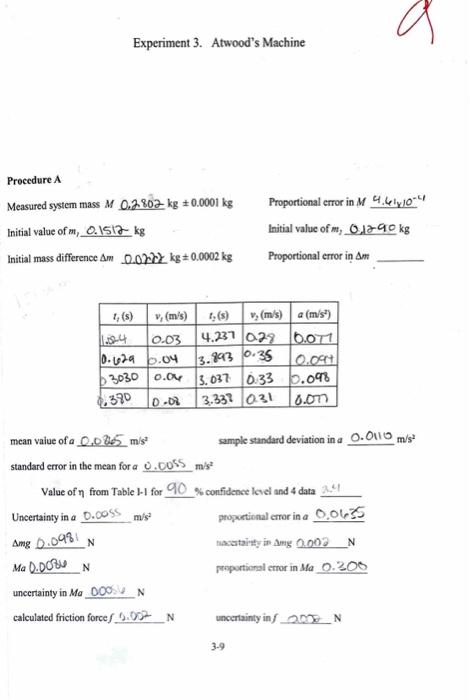 Experiment 3. Atwood's Machine
Procedure A
Measured system mass M 0.2802 kg ± 0.0001 kg Proportional error in M
Initial value of m, 0.1512 kg Initial value of m, 0.1290 kg
Initial mass difference Δm kg ± 0.0002 kg Proportional error in Δm
t₁ (s) v₁ (m/s) t₂ (s) v₂ (m/s) a (m/s²)
0.03 4.237 0.28 0.077
0.629 0.04 3.893 0.35
3.037 0.33 0.098
3.337 0.31 0.077
mean value of a m/s² sample standard deviation in a 0.0110 m/s²
standard error in the mean for a 0.0055 m/s²
Value of η from Table 1-1 for 90 % confidence level and 4 data
Uncertainty in a 0.0055 m/s² proportional error in a 0.0635
Δmg 0.0981 N uncertainty in Δmg 0.002 N
Ma N proportional error in Ma 0.200
uncertainty in Ma N
calculated friction force f N uncertainty in f N
3-9